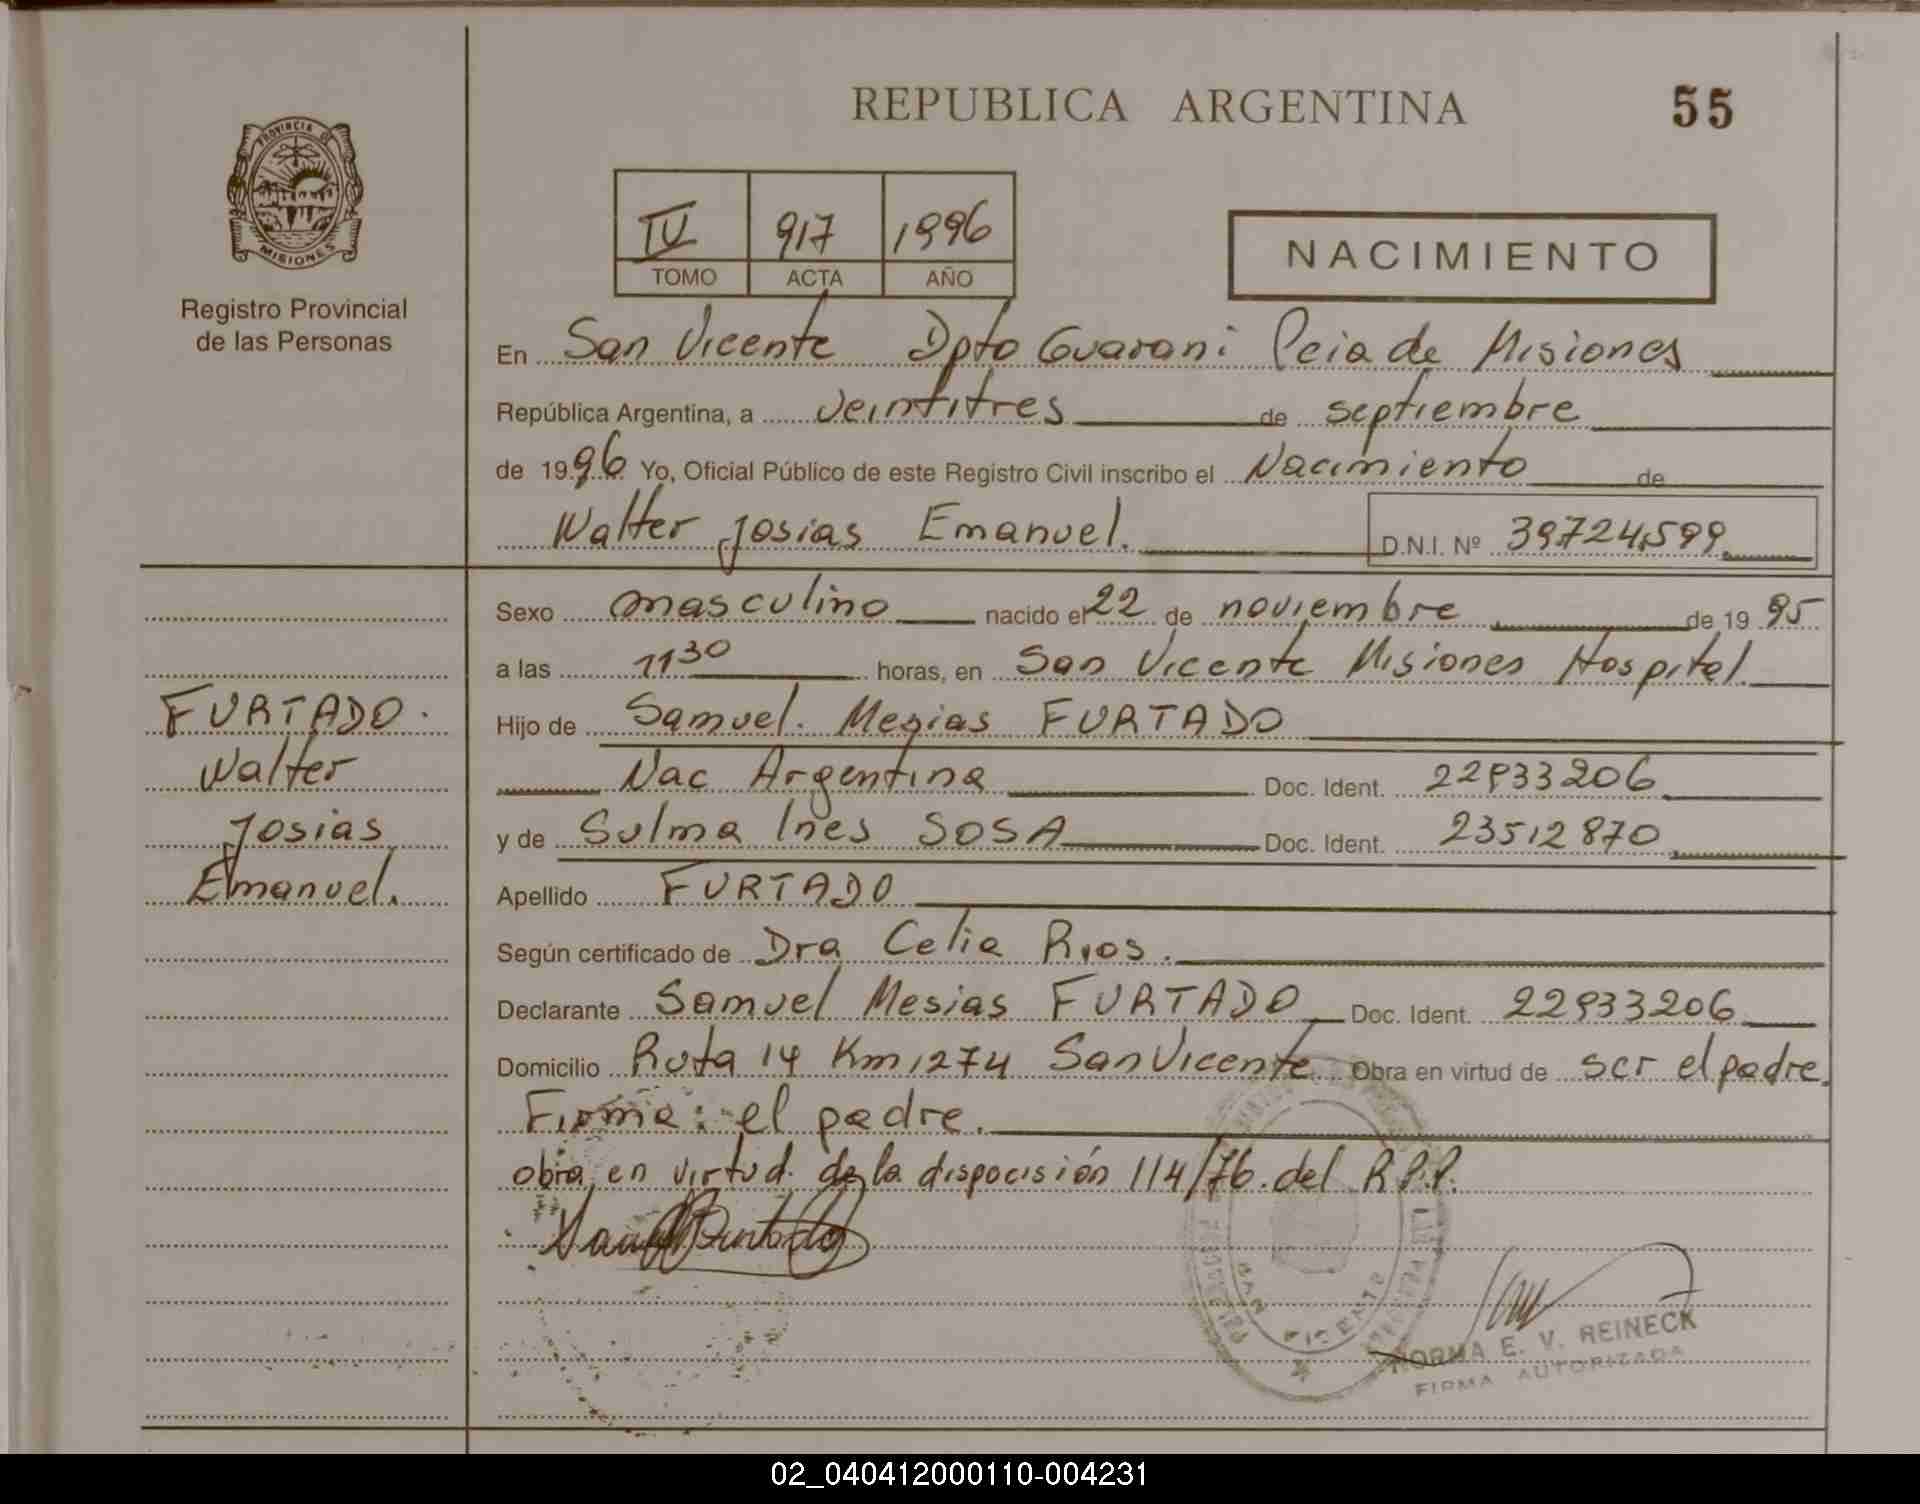 REPUBLICA ARGENTINA
55
PROVINCIA DE
MISIONES
Registro Provincial
de las Personas
IV 917 1996
TOMO ACTA AÑO
NACIMIENTO
En San Vicente Dpto Guarani Pcia de Misiones
República Argentina, a veintitres de septiembre
de 1996 Yo, Oficial Público de este Registro Civil inscribo el Nacimiento de
Walter Josias Emanuel. D.N.I. Nº 39724.599
Sexo masculino nacido el 22 de noviembre de 1995
a las 11 30 horas, en San Vicente Misiones Hospital.
Hijo de Samuel. Mesias FURTADO
Nac Argentina Doc. Ident. 22933206
y de Sulma Ines SOSA Doc. Ident. 23512870
Apellido FURTADO
Según certificado de Dra Celia Rios.
Declarante Samuel Mesias FURTADO Doc. Ident. 22933206
Domicilio Ruta 14 Km 1274 San Vicente Obra en virtud de ser el padre.
Firma: el padre.
obra en virtud de la dispocisión 114/76 del R.P.P.
FURTADO.
Walter
Josias
Emanuel.
SAN VICENTE
NORMA E. V. REINECK
FIRMA AUTORIZADA
02_040412000110-004231